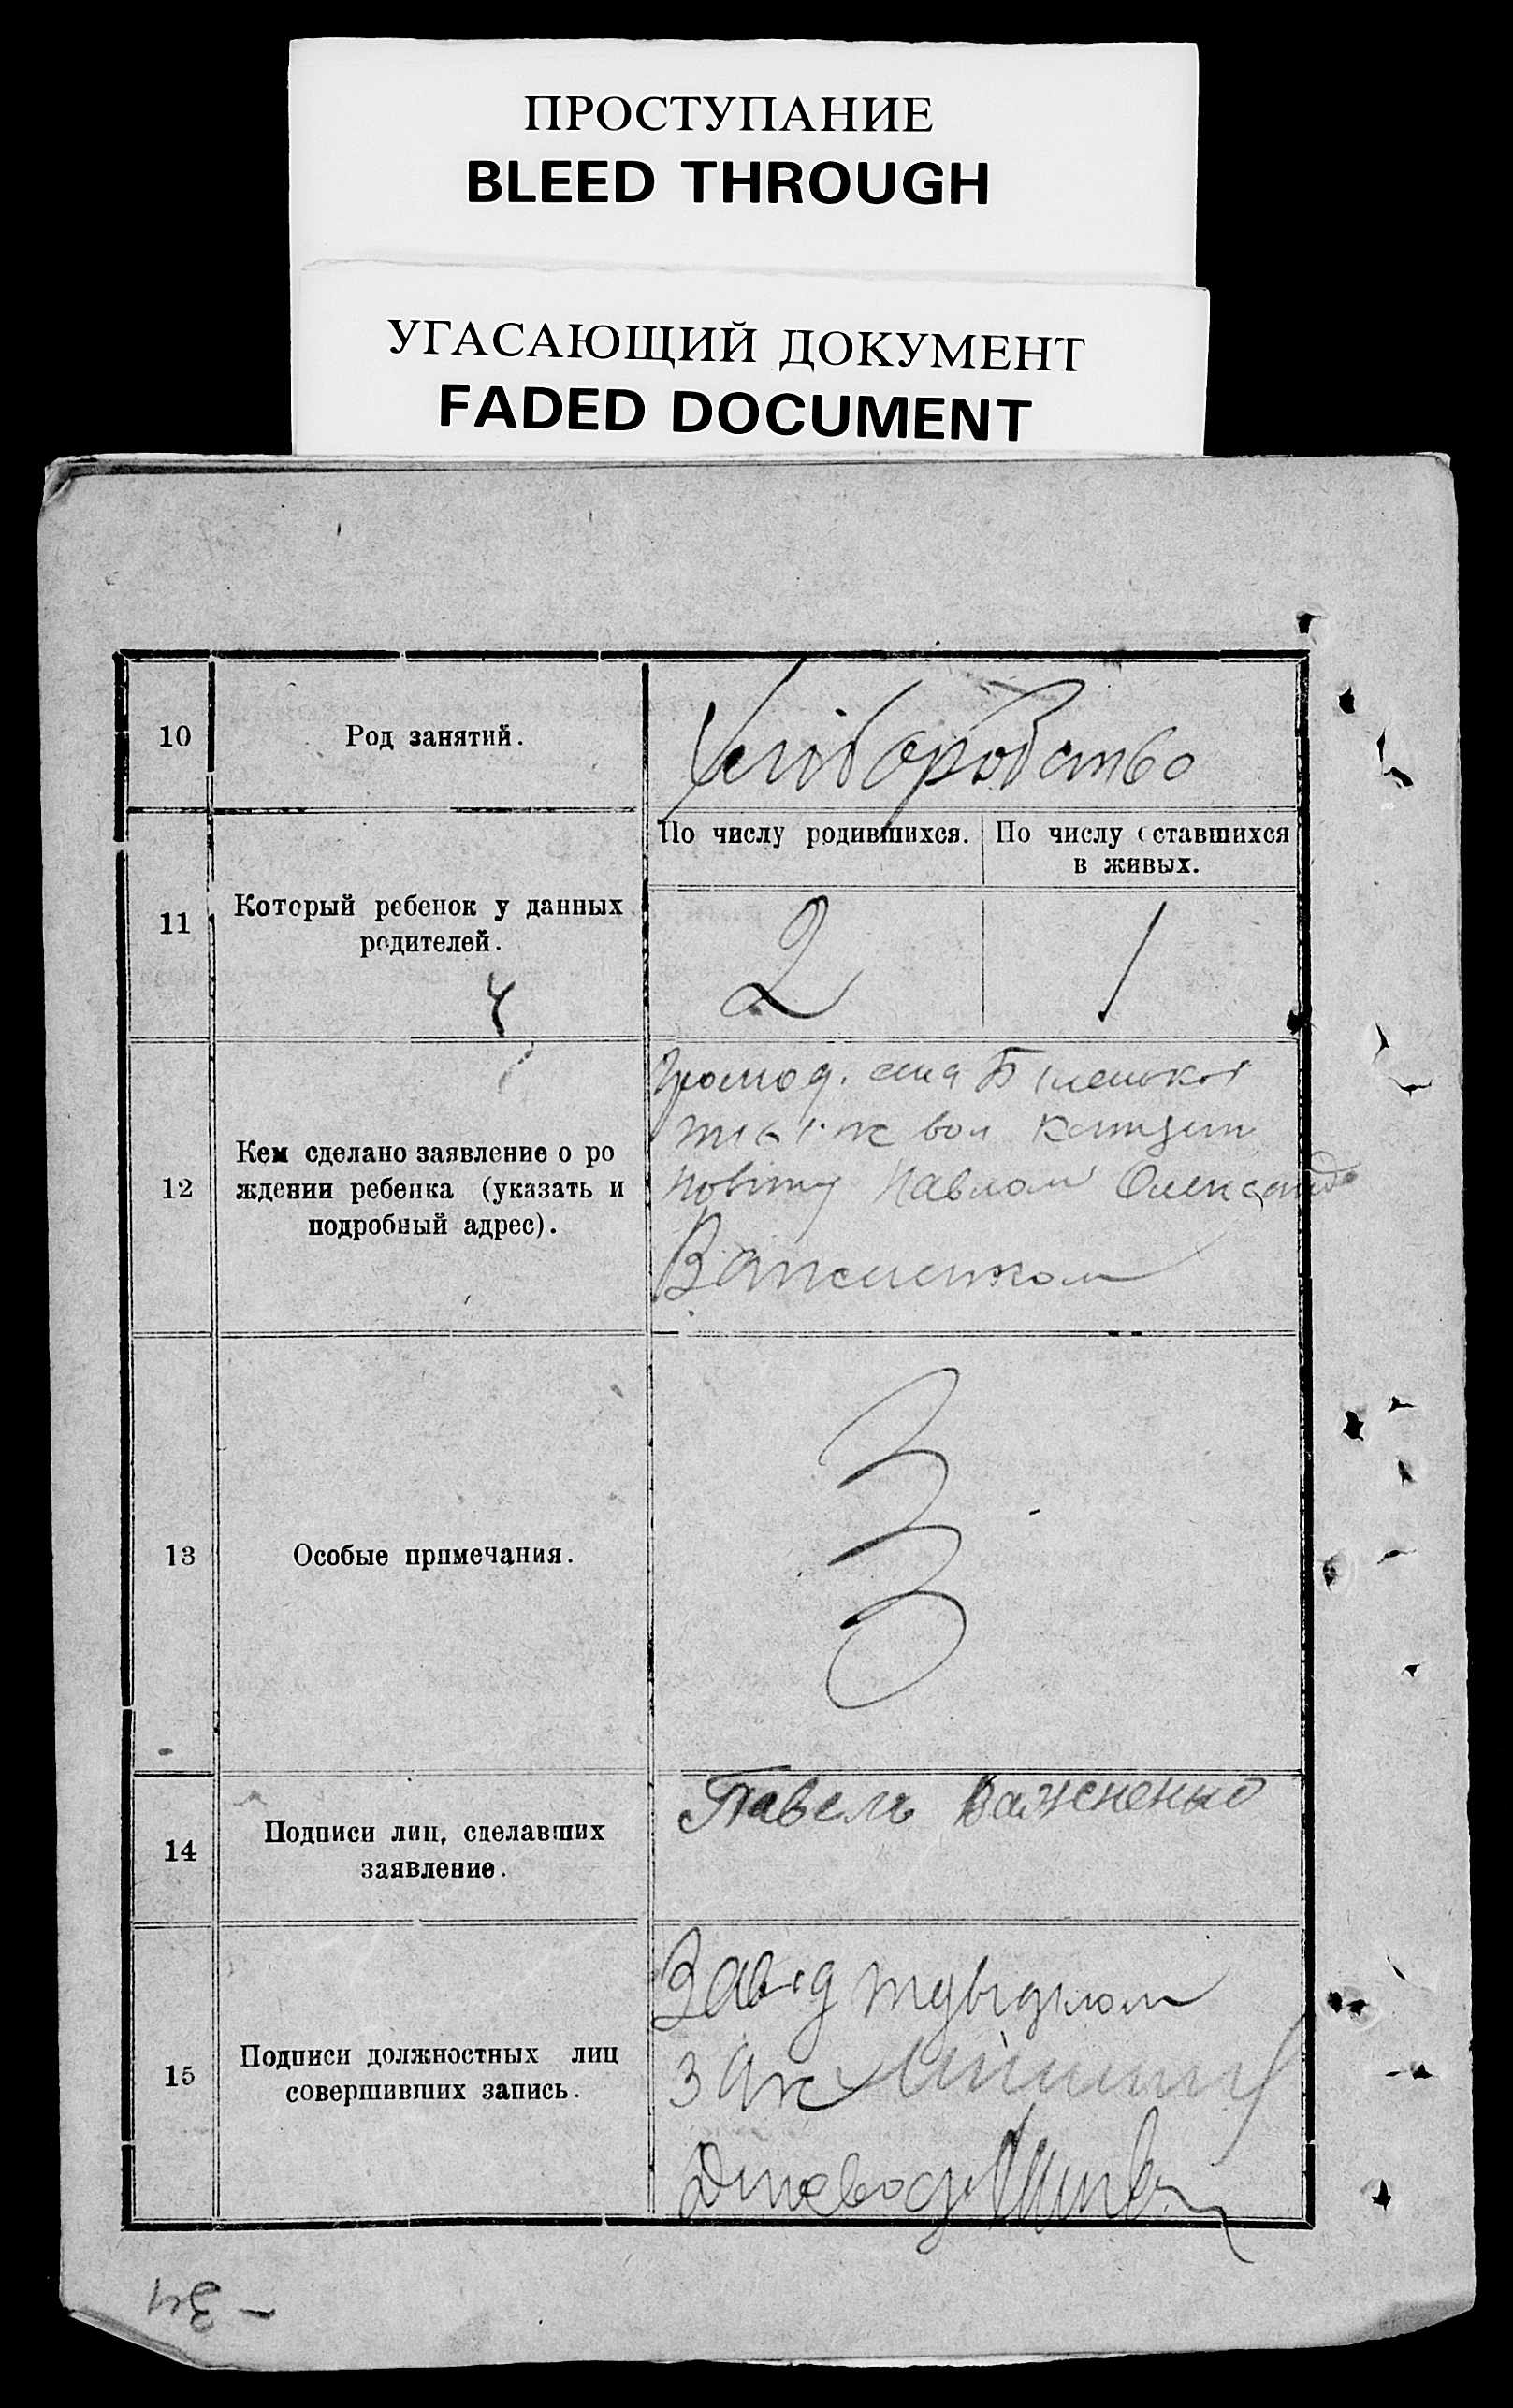 ПРОСТУПАНИЕ
BLEED THROUGH
УГАСАЮЩИЙ ДОКУМЕНТ
FADED DOCUMENT
10
Род занятий.
Хліборобство
11
Который ребенок у данных
родителей.
4
По числу родившихся.
По числу оставшихся
в живых.
2
1
12
Кем сделано заявление о ро
ждении ребенка (указать и
подробный адрес).
Громод. села
вол
повіту Павлом Олександ
Важененком
13
Особые примечания.
14
Подписи лиц, сделавших
заявление.
Павелъ Важненко
15
Подписи должностных лиц
совершивших запись.
Завід
Діловод